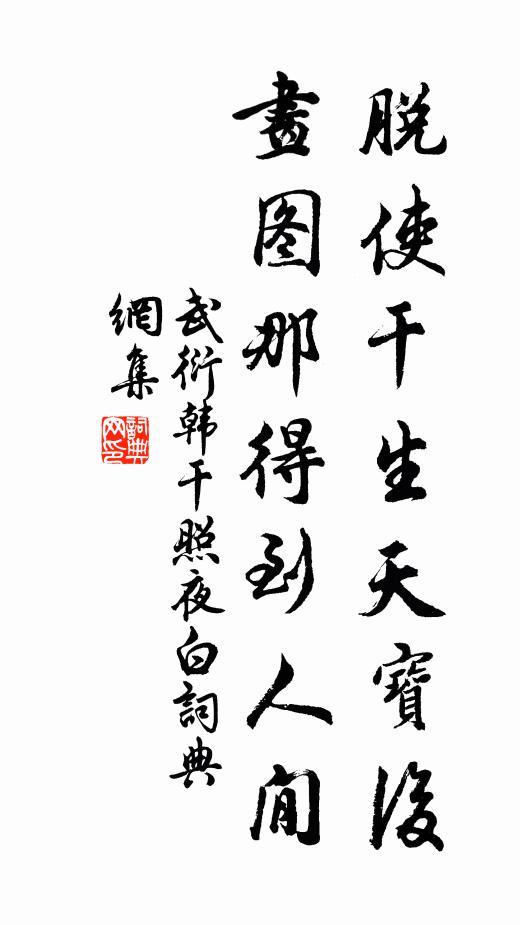 脱使干生天寶後
畫图那得到人间
武衍韩干照夜白詞典
網集
詞典
网印